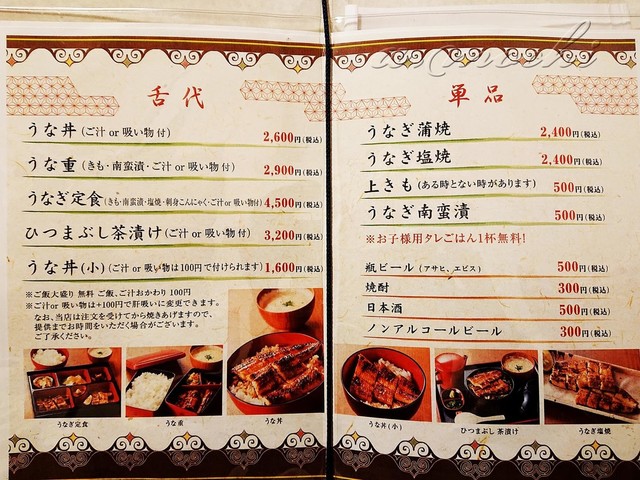 舌代
うな丼(ご汁 or 吸い物 付) 2,600円(税込)
うな重(きも・南蛮漬・ご汁 or 吸い物 付) 2,900円(税込)
うなぎ定食(きも・南蛮漬・塩焼・刺身こんにゃく・ご汁 or 吸い物付) 4,500円(税込)
ひつまぶし茶漬け(ご汁 or 吸い物 付) 3,200円(税込)
うな丼(小)(ご汁 or 吸い物は100円で付けられます) 1,600円(税込)
※ご飯大盛り 無料 ご飯、ご汁おかわり 100円
※ご汁or 吸い物は+100円で肝吸いに変更できます。
なお、当店は注文を受けてから焼きあげますので、
提供までお時間をいただく場合がございます。
ご了承ください。
うなぎ定食
うな重
うな丼
単品
うなぎ蒲焼 2,400円(税込)
うなぎ塩焼 2,400円(税込)
上きも(ある時とない時があります) 500円(税込)
うなぎ南蛮漬 500円(税込)
※お子様用タレごはん1杯無料!
瓶ビール(アサヒ、エビス) 500円(税込)
焼酎 300円(税込)
日本酒 500円(税込)
ノンアルコールビール 300円(税込)
うな丼(小)
ひつまぶし 茶漬け
うなぎ塩焼